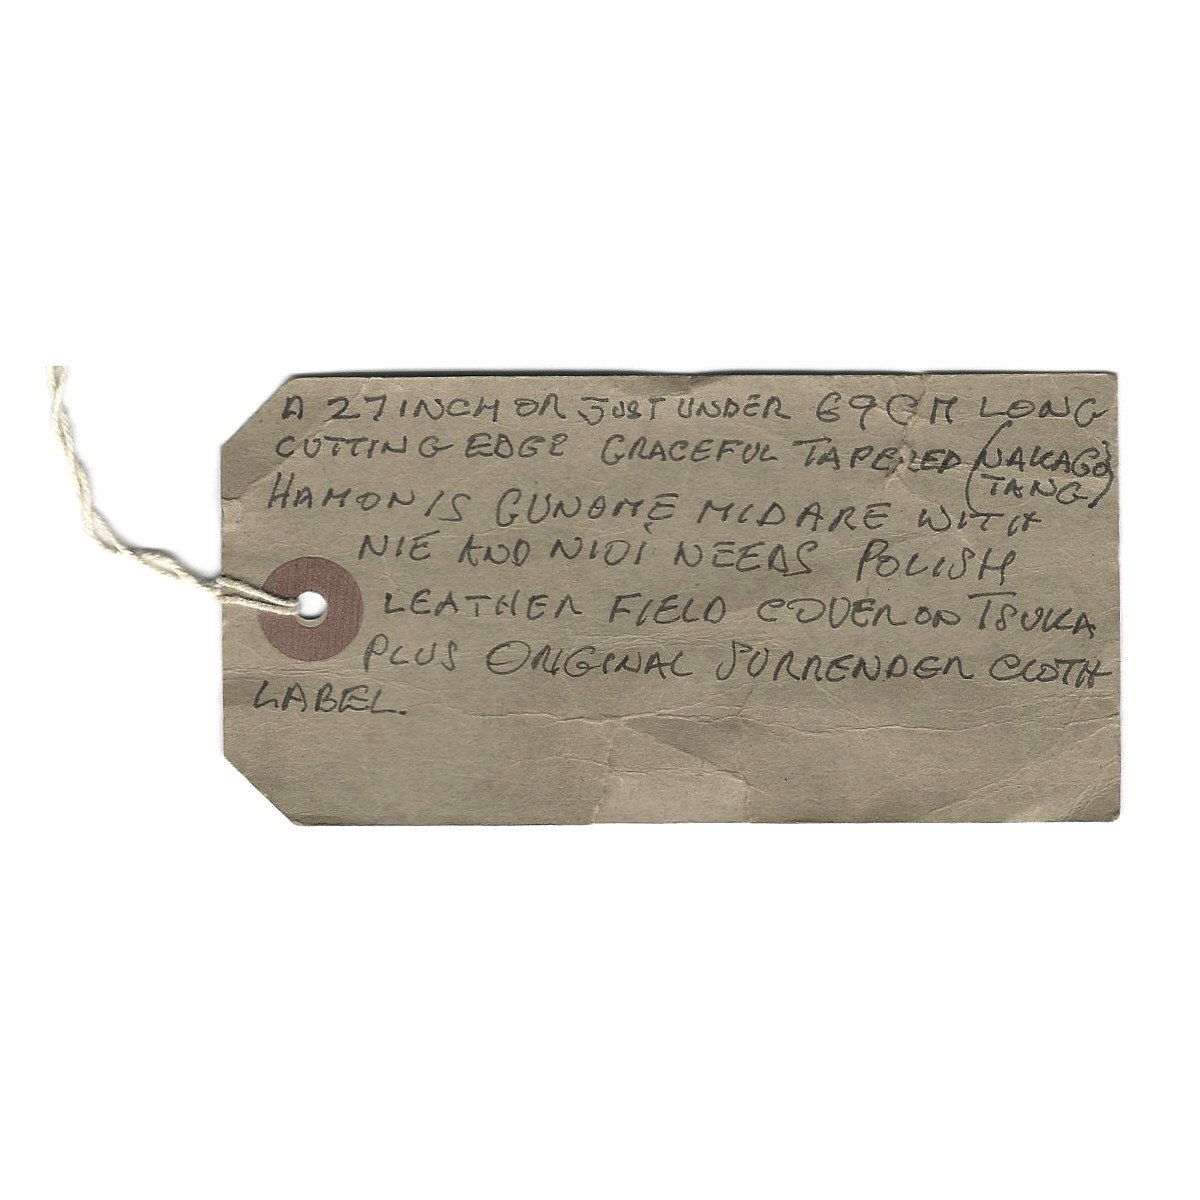 A 27 INCH OR JUST UNDER 69 CM LONG
CUTTING EDGE GRACEFUL TAPERED (NAKAGO
TANG)
HAMON IS GUNOME MIDARE WITH
NIE AND NIOI NEEDS POLISH
LEATHER FIELD COVER ON TSUKA
PLUS ORIGINAL SURRENDER CLOTH
LABEL.